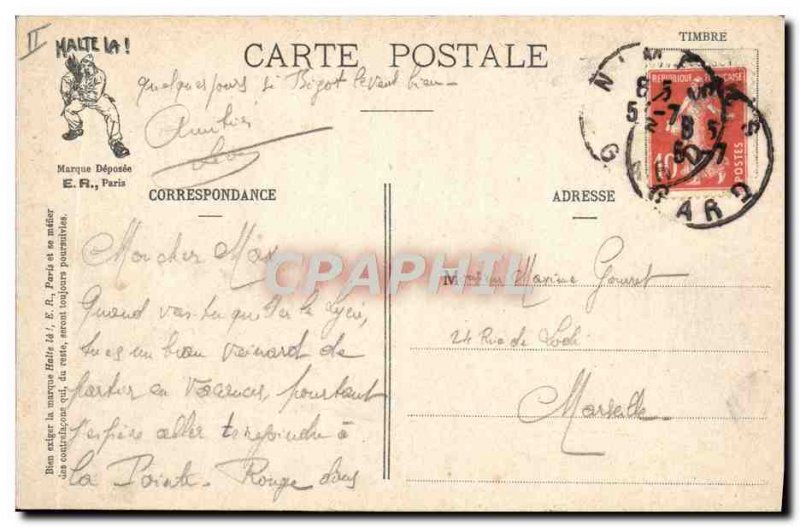 II
HALTE LA !
TIMBRE
CARTE POSTALE
quelques jours si Bizot le veut bien -
Amitiés
Léon
Marque Déposée
E. R., Paris
CORRESPONDANCE
ADRESSE
NIMES
8-5
5-7
GARD
REPUBLIQUE FRANÇAISE
10
POSTES
Bien exiger la marque Halte là !, E. R., Paris et se méfier
des contrefaçons qui, du reste, seront toujours poursuivies.
Mon cher Max
Quand vas-tu quitter le Lycée,
tu es un bien veinard de
partir en vacances pourtant
j'espère aller te rejoindre à
la Pointe - Rouge dans
Monsieur Maxime Gouret
24 Rue de Lodi
Marseille
CPAPHIL